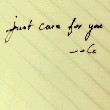 just care for you